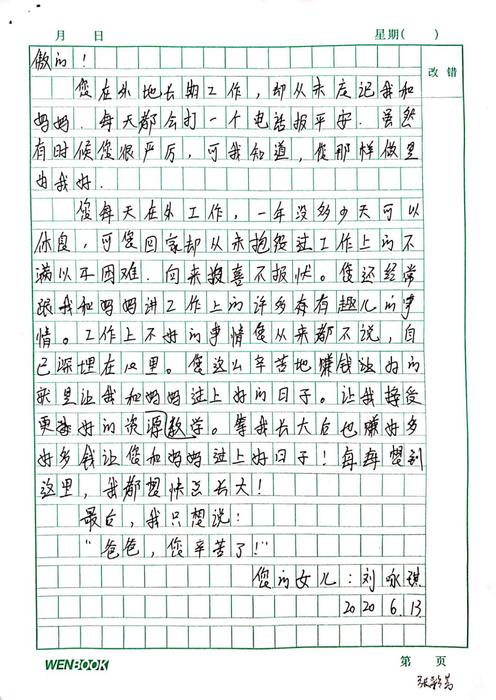 月 日 星期( )
改错
傲的！
您在外地长期工作，却从未忘记我和
妈妈．每天都会打一个电话报平安．虽然
有时候您很严厉，可我知道，您那样做是
为我好．
您每天在外工作，一年没多少天可以
休息，可您回家却从未抱怨过工作上的不
满以及困难．向来报喜不报忧。您还经常
跟我和妈妈讲工作上的许多有趣儿的事
情。工作上不好的事情您从来都不说，自
己深埋在心里。您这么辛苦地赚钱让
家里让我和妈妈过上好的日子。让我接受
更好的资源教学。等我长大后也赚好多
好多钱让您和妈妈过上好日子！每每想到
这里，我都想快点长大！
最后，我只想说：
“爸爸，您辛苦了！”
您的女儿：刘咏琪
2020 6. 13
WENBOOK 第 页